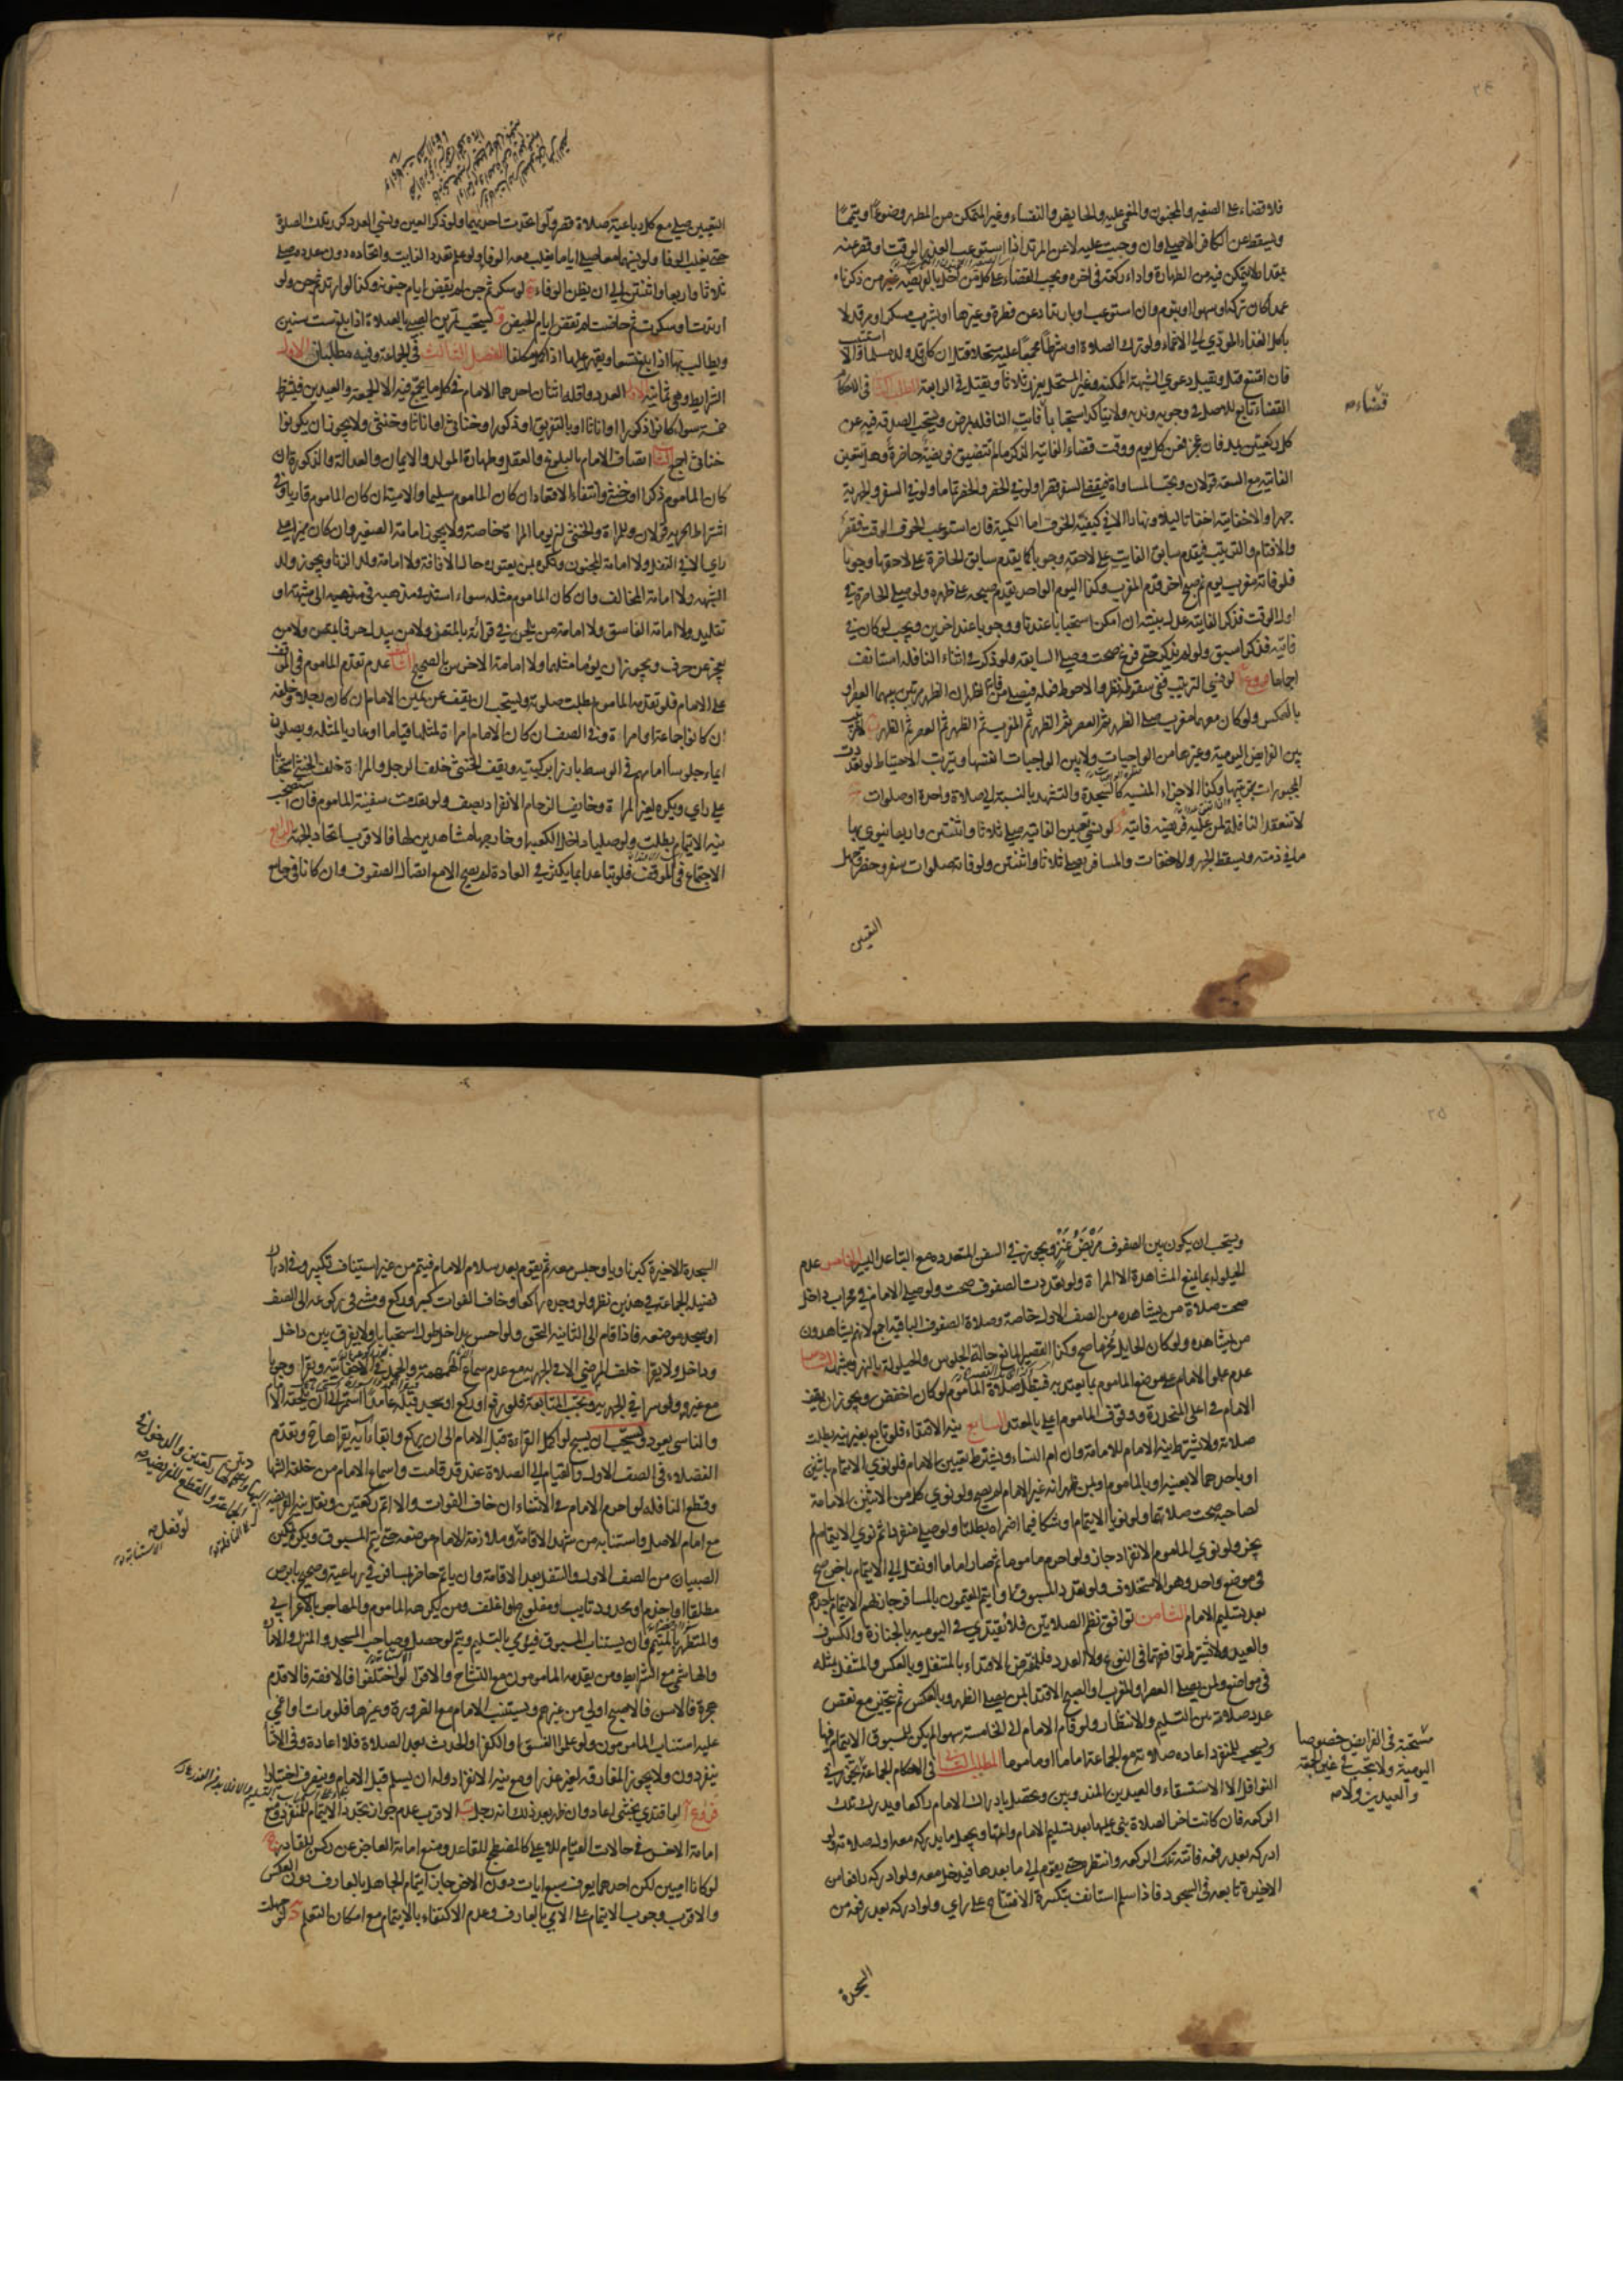 فلا قضاء على الصغير والمجنون والمغمى عليه والحايض والنفساء وغير المتمكن من المطهر وضوءا وتيمما
ويسقط عن الكافر الاصلي وان وجبت عليه لا عن المرتد اذا استوعب العذر الوقت او قصر عنه
بمقدار لا يتمكن فيه من الطهارة واداء ركعة في اخره ويجب القضاء على كل من اخل بالفريضة غير من ذكرناه
عمدا كان تركه او سهوا او بنوم وان استوعب او بارتداد عن فطرة وغيرها او بشرب مسكر او مرقد لا
باكل الغذاء المؤدي الى الاغماء ولو ترك الصلاة او شرطا مجمعا عليه مستحلا قتل ان كان قد ولد مسلما والا استتيب
فان امتنع قتل ويقبل دعوى الشبهة الممكنة وغير المستحل يعزر ثلاثا ويقتل في الرابعة المطلب الثاني في الاحكام
القضاء تابع للاصل في وجوبه وندبه ولا يتأكد استحباب فايت النافلة بمرض ويستحب الصدقة فيه عن
كل ركعتين بمد فان عجز فعن كل يوم ووقت قضاء الفايتة الذكر ما لم تتضيق فريضة حاضرة وهل يتعين
الفايتة مع السعة قولان ويجب المساواة فيقضي السفر قصرا ولو في الحضر والحضر تماما ولو في السفر والجهرية
جهرا والاخفاتية اخفاتا ليلا ونهارا الا في كيفية الخوف اما الكمية فان استوعب الخوف الوقت فقصر
والا فتمام والترتيب فيقدم سابق الفايت على لاحقه وجوبا كما يقدم سابق الحاضرة على لاحقها وجوبا
فلو فاته مغرب يوم ثم صبح اخر قدم المغرب وكذا اليوم الواحد يقدم صبحه على ظهره ولو صلى الحاضرة في
اول الوقت فذكر الفايتة عدل بنيته ان امكن استحبابا عندنا ووجوبا عند اخرين ويجب لو كان في
فايتة فذكر اسبق ولو لم يذكر حتى فرغ صحت وصلى السابقة ولو ذكر في اثناء النافلة استانف
اجماعا فروع لو نسي الترتيب ففي سقوطه نظر والاحوط فعله فيصلي من فاته الظهران الظهر مرتين بينهما العصر او
بالعكس ولو كان معهما مغرب صلى الظهر ثم العصر ثم الظهر ثم المغرب ثم الظهر ثم العصر ثم الظهر لا ترتيب
بين الفرايض اليومية وغيرها من الواجبات ولا بين الواجبات انفسها ويترتب الاحتياط لو تعددت
المجبورات بترتيبها وكذا الاجزاء المنسية كالسجدة والتشهد بالنسبة الى صلاة واحدة او صلوات
لا تنعقد النافلة لمن عليه فريضة فايتة لو نسي تعيين الفايتة صلى ثلاثا واثنتين واربعا ينوي بها
ما في ذمته ويسقط الجهر والاخفات والمسافر يصلي ثلاثا واثنتين ولو فاتته صلوات سفر وحضر وجهل
التعيين
قضاء
التعيين صلى مع كل رباعية صلاة قصر ولو اتحدت احديهما ولو ذكر العين ونسي العدد كرر تلك الصلاة
حتى يغلب الوفا ولو نسيهما معا صلى اياما يغلب معه الوفا ولو علم تعدد الفايت واتحاده دون عدده صلى
ثلاثا واربعا واثنتين الى ان يظن الوفاء لو سكر ثم جن لم يقض ايام جنونه وكذا لو ارتد ثم جن ولو
ارتدت او سكرت ثم حاضت لم تقض ايام الحيض يستحب تمرين الصبي بالصلاة اذا بلغ ست سنين
ويطالب بها اذا بلغ تسعا ويقهر عليها اذا كمل مكلفا الفصل الثالث في الجماعة وفيه مطلبان الاول
الشرايط وهي ثمانية الاول العدد واقله اثنان احدهما الامام في كل ما يجمع فيه الا الجمعة والعيدين فيشترط
خمسة سواء كانوا ذكورا او اناثا او بالتفريق او ذكورا وخناثى او اناثا وخنثى ولا يجوز ان يكونوا
خناثى اجمع الثاني اتصاف الامام بالبلوغ والعقل وطهارة المولد والايمان والعدالة والذكورة ان
كان الماموم ذكرا او خنثى وانتفاء الاقعاد ان كان الماموم سليما والامية ان كان الماموم قاريا وفي
اشتراط الحرية قولان وللمراة والخنثى ان يوما المراة خاصة ولا يجوز امامة الصغير وان كان مميزا على
راي الا في النفل ولا امامة المجنون ويكره بمن يعتوره حال الافاقة ولا امامة ولد الزنا ويجوز ولد
الشبهة ولا امامة المخالف وان كان الماموم مثله سواء استند في مذهبه الى شبهة او
تقليد ولا امامة الفاسق ولا امامة من يلحن في قرائته بالمتقن ولا من يبدل حرفا بمتقن ولا من
يعجز عن حرف ويجوز ان يؤما مثلهما ولا امامة الاخرس بالصحيح الثالث عدم تقدم الماموم في الموقف
على الامام فلو تقدمه الماموم بطلت صلوته ويستحب ان يقف عن يمين الامام ان كان رجلا وخلفه
ان كانوا جماعة او امراة وفي الصف ان كان الامام امراة لمثلها قياما او عاريا لمثله ويصلون
ايماء جلوسا امامهم في الوسط بارزا بركبتيه ويقف الخنثى خلف الرجل والمراة خلف الخنثى استحبابا
على راي ويكره لغير المراة وخايف الزحام الانفراد بصف ولو تقدمت سفينة الماموم فان استصحب
نية الايتمام بطلت ولو صليا داخل الكعبة او خارجها مشاهدين لها فالاقرب اتحاد الجهة الرابع
الاجتماع في الموقف فلو تباعدا بما يكثر في العادة لم يصح الا مع اتصال الصفوف وان كانا في جامع
ويستحب ان يكون بين الصفوف مربض عنز ويجوز في السفن المتعددة مع التباعد اليسير الخامس عدم
الحيلولة بما يمنع المشاهدة الا المراة ولو تعددت الصفوف صحت ولو صلى الامام في محراب داخل
صحت صلاة من يشاهده من الصف الاول خاصة وصلاة الصفوف الباقية اجمع لانهم يشاهدون
من يشاهده ولو كان الحايل مخرما صح وكذا القصير المانع حالة الجلوس والحيلولة بالنهر وشبهه السادس
عدم علو الامام على موضع الماموم بما يعتد به فتبطل صلاة الماموم لو كان اخفض ويجوز ان يقف
الامام في اعلى المنحدرة ووقوف الماموم اعلى بالمعتد السابع نية الاقتداء فلو تابع بغير نية بطلت
صلاته ولا يشترط نية الامام للامامة وان ام النساء ويشترط تعيين الامام فلو نوى الايتمام باثنين
او باحدهما لا بعينه او بالماموم او بمن ظهر انه غير الامام لم يصح ولو نوى كل من الاثنين الامامة
لصاحبه صحت صلاتهما ولو نويا الايتمام او شكا فيما اضمراه بطلتا ولو صلى منفردا ثم نوى الايتمام لم
يجز ولو نوى الماموم الانفراد جاز ولو احرم ماموما ثم صار اماما او نقل الى الايتمام باخر صح
في موضع واحد وهو الاستخلاف ولو تعدد المسبوق او ايتم المقيمون بالمسافر جاز لهم الايتمام باحدهم
بعد تسليم الامام الثامن توافق نظم الصلاتين فلا يقتدي في اليومية بالجنازة والكسوف
والعيد ولا يشترط توافقهما في النوع ولا العدد فللمفترض الاقتداء بالمتنفل وبالعكس والمتنفل بمثله
في مواضع ولمن يصلي العصر او المغرب او الصبح الاقتداء بمن يصلي الظهر وبالعكس ثم يتخير مع نقص
عدد صلاته بين التسليم والانتظار ولو قام الامام الى الخامسة سهوا لم يكن للمسبوق الايتمام فيها
ويستحب للمنفرد اعادة صلاته مع الجماعة اماما او ماموما المطلب الثاني في الاحكام الجماعة يجوز في
النوافل الا الاستسقاء والعيدين المندوبين وتحصل بادراك الامام راكعا ويدرك تلك
الركعة فان كانت اخر الصلاة بنى عليها بعد تسليم الامام واتمها ويجعل ما يدركه معه اول صلاته ولو
ادركه بعد رفعه فاتته تلك الركعة وانتظر حتى يقوم الى ما بعدها فيدخل معه ولو ادركه رافعا من
الاخيرة تابعه في السجود فاذا سلم استانف بتكبيرة الافتتاح على راي ولو ادركه بعد رفعه من
السجدة
مستحبة في الفرايض خصوصا
اليومية ولا تجب في غير الجمعة
والعيدين ولا
السجدة الاخيرة كبر ناويا وجلس معه ثم يقوم بعد سلام الامام فيتم من غير استيناف تكبير وفي ادراك
فضيلة الجماعة في هذين نظر ولو وجده راكعا وخاف الفوات كبر وركع ومشى في ركوعه الى الصف
او سجد موضعه فاذا قام الى الثانية التحق ولو احس بداخل طول استحبابا ولا يفرق بين داخل
وداخل ولا يقرا خلف المرضي الا في الجهرية مع عدم سماع الهمهمة والحمد في الاخفاتية ويقرا وجوبا
مع غيره ولو سرا في الجهرية وتجب المتابعة فلو رفع او ركع او سجد قبله عامدا استمر الى ان يلحقه الامام
والناسي يعود ويستحب ان يسبح لو اكمل القراءة قبل الامام الى ان يركع وابقاء آية يقرا بها ثم وتقدم
الفضلاء في الصف الاول والقيام الى الصلاة عند قد قامت واسماع الامام من خلفه الشهادتين
وقطع النافلة لو احرم الامام في الاثناء ان خاف الفوات والا اتم ركعتين ونقل نية الفريضة
مع امام الاصل واستنابة من شهد الاقامة وملازمة الامام موضعه حتى يتم المسبوق ويكره تمكين
الصبيان من الصف الاول والتنفل بعد الاقامة وان ياتم حاضر بمسافر في رباعية وصحيح بابرص
مطلقا او اجذم او محدود تايب او مفلوج او اغلف ومن يكرهه الماموم والمهاجر بالاعرابي
والمتطهر بالمتيمم وان يستناب المسبوق فيومي بالتسليم ويتم لو حصل وصاحب المسجد والمنزل والامارة
والهاشمي مع الشرايط ومن يقدمه المامومون مع التشاح والاقرا لو اختلفوا فالافقه فالاقدم
هجرة فالاسن فالاصبح اولى من غيرهم ويستنيب الامام مع الضرورة وغيرها فلو مات او اغمي
عليه استناب المامومون ولو علموا الفسق او الكفر او الحدث بعد الصلاة فلا اعادة وفي الاثناء
ينفردون ولا يجوز المفارقة لغير عذر او مع نية الانفراد وله ان يسلم قبل الامام وينصرف اختيارا
فروع لو اقتدى بخنثى اعاد وان ظهر بعد ذلك انه رجل الاقرب عدم جواز تجدد الايتمام للمنفرد ومنع
امامة الاخس في حالات القيام للاعلى كالمضطجع للقاعد ومنع امامة العاجز عن ركن للقادر
لو كانا اميين لكن احدهما يعرف سبع ايات دون الاخر جاز ايتمام الجاهل بالعارف دون العكس
والاقرب وجوب الايتمام على الامي بالعارف وعدم الاكتفاء بالايتمام مع امكان التعلم لو جهلت